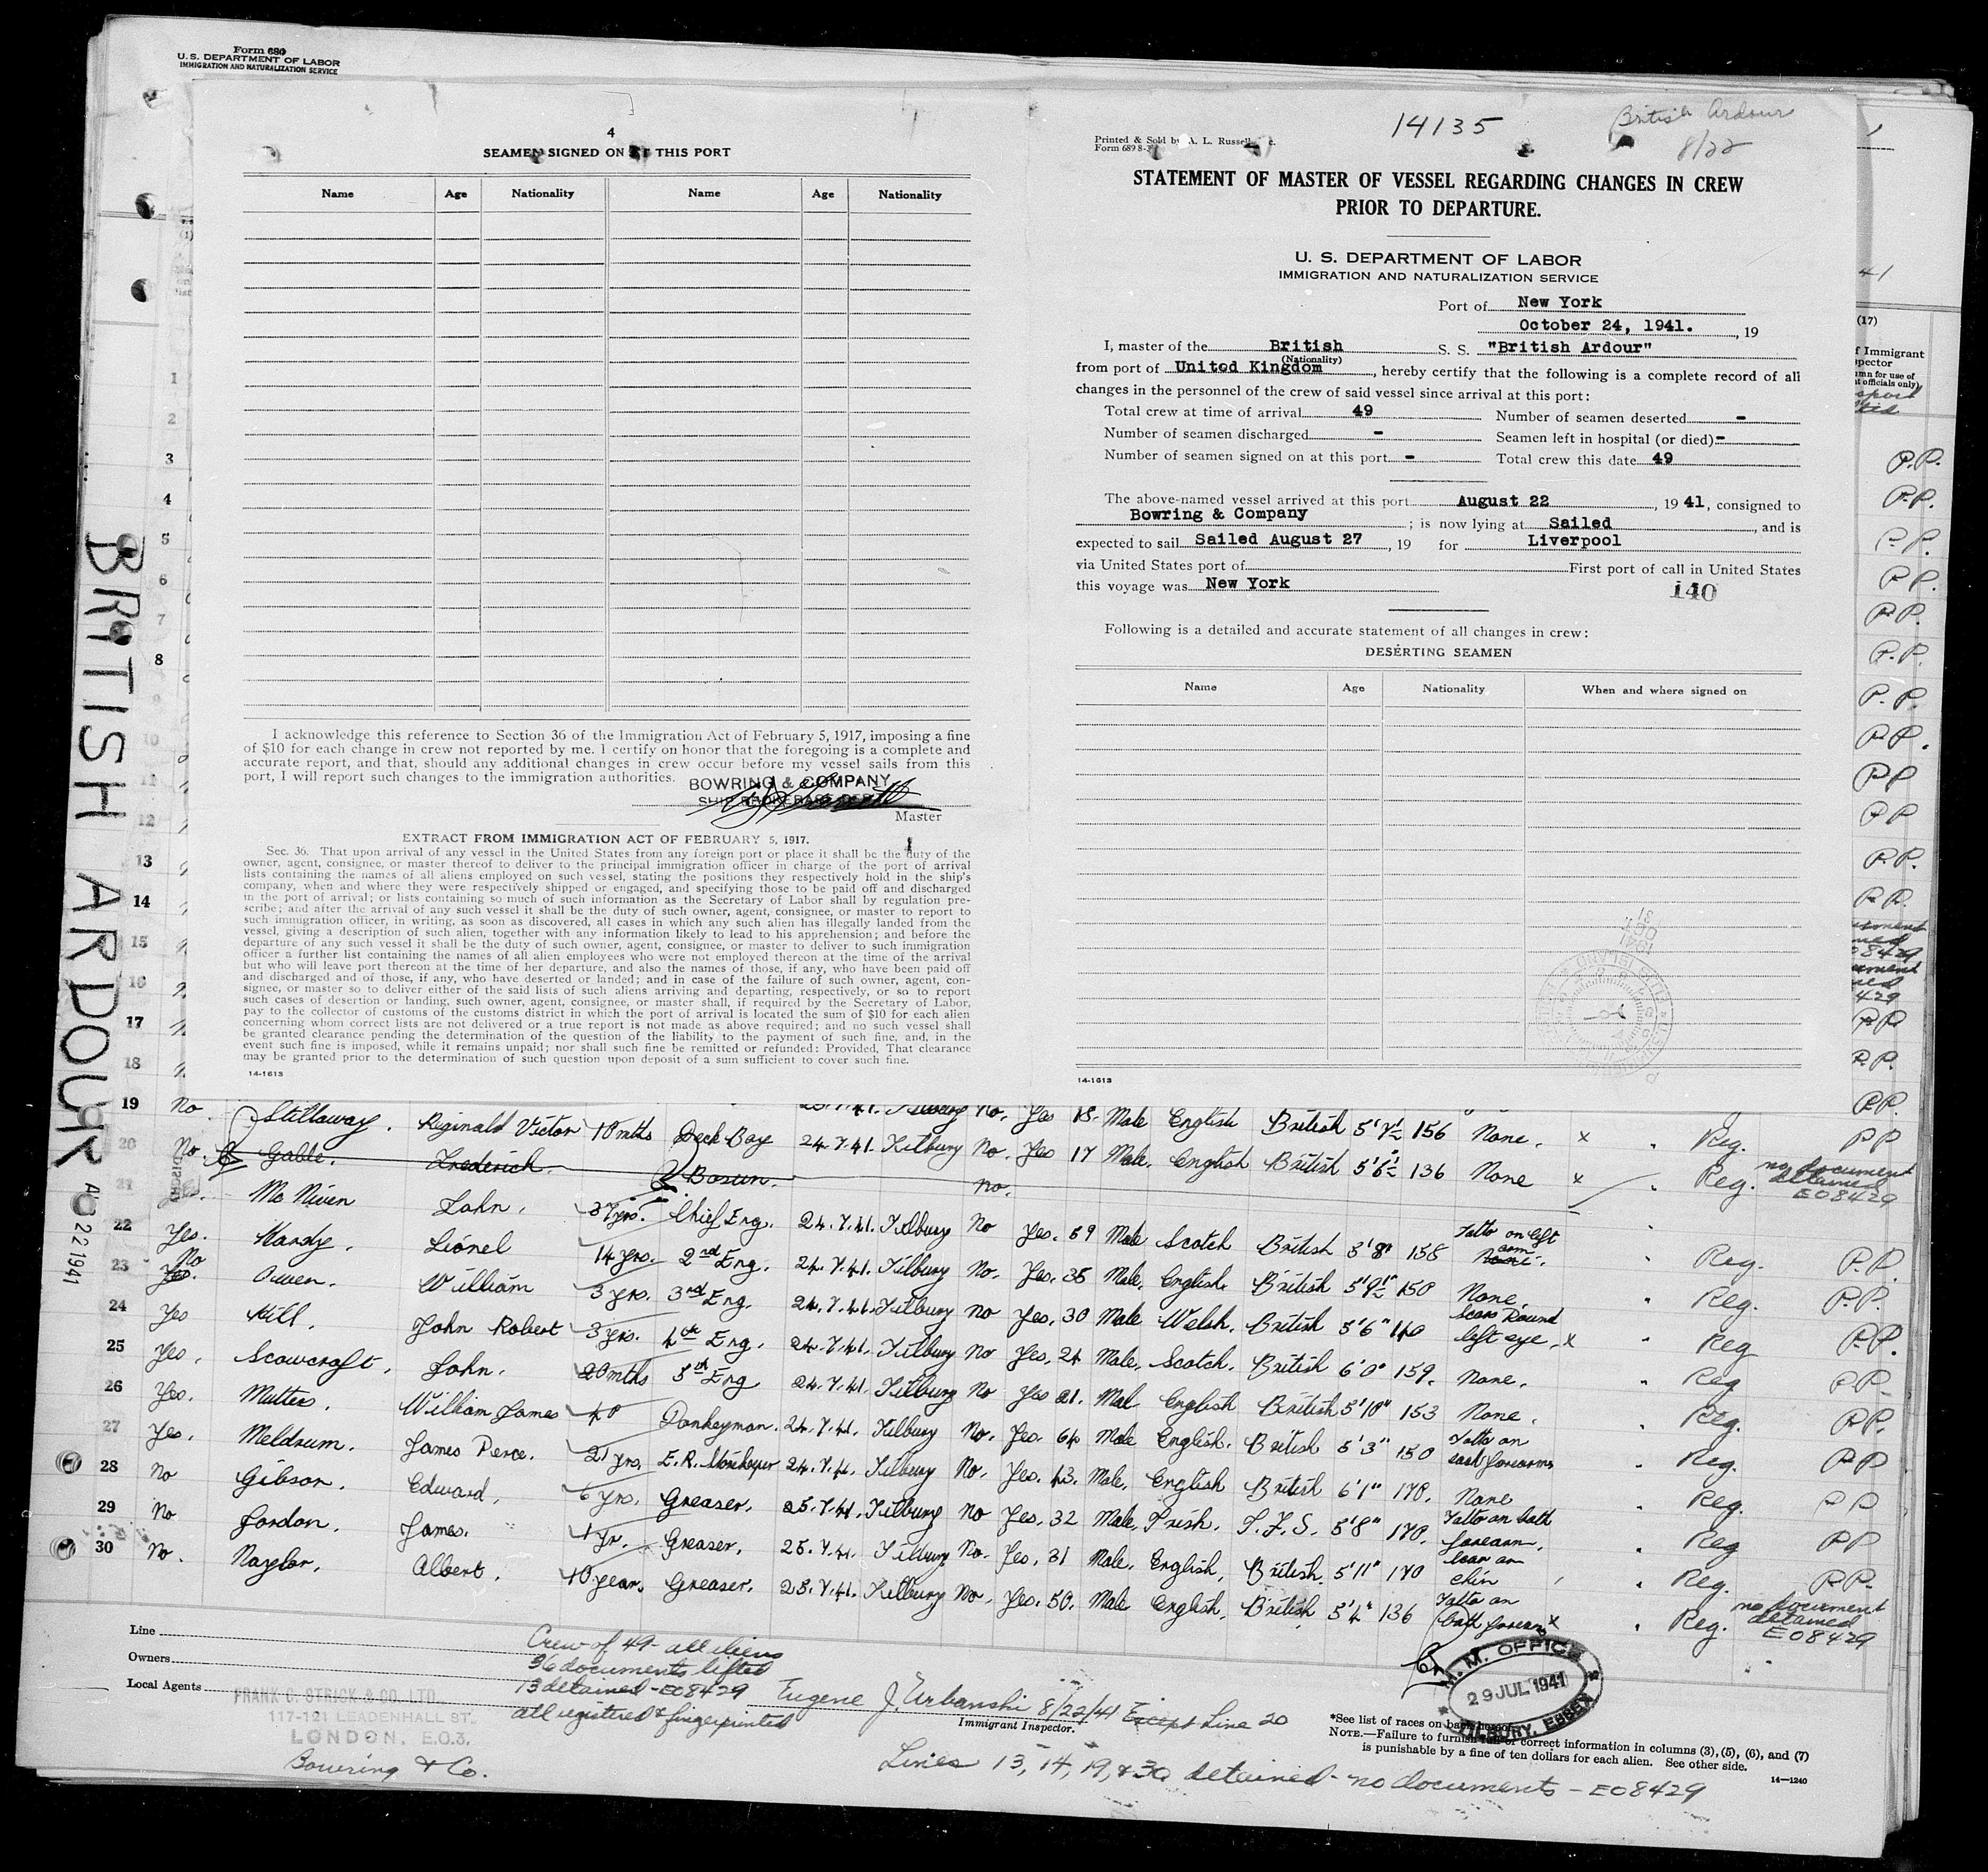 Form 680
U. S. DEPARTMENT OF LABOR
IMMIGRATION AND NATURALIZATION SERVICE
4
SEAMEN SIGNED ON AT THIS PORT
Name Age Nationality Name Age Nationality
I acknowledge this reference to Section 36 of the Immigration Act of February 5, 1917, imposing a fine
of $10 for each change in crew not reported by me. I certify on honor that the foregoing is a complete and
accurate report, and that, should any additional changes in crew occur before my vessel sails from this
port, I will report such changes to the immigration authorities.
BOWRING & COMPANY
Master
EXTRACT FROM IMMIGRATION ACT OF FEBRUARY 5, 1917.
Sec. 36. That upon arrival of any vessel in the United States from any foreign port or place it shall be the duty of the
owner, agent, consignee, or master thereof to deliver to the principal immigration officer in charge of the port of arrival
lists containing the names of all aliens employed on such vessel, stating the positions they respectively hold in the ship's
company, when and where they were respectively shipped or engaged, and specifying those to be paid off and discharged
in the port of arrival; or lists containing so much of such information as the Secretary of Labor shall by regulation pre-
scribe; and after the arrival of any such vessel it shall be the duty of such owner, agent, consignee, or master to report to
such immigration officer, in writing, as soon as discovered, all cases in which any such alien has illegally landed from the
vessel, giving a description of such alien, together with any information likely to lead to his apprehension; and before the
departure of any such vessel it shall be the duty of such owner, agent, consignee, or master to deliver to such immigration
officer a further list containing the names of all alien employees who were not employed thereon at the time of the arrival
but who will leave port thereon at the time of her departure, and also the names of those, if any, who have been paid off
and discharged and of those, if any, who have deserted or landed; and in case of the failure of such owner, agent, con-
signee, or master so to deliver either of the said lists of such aliens arriving and departing, respectively, or so to report
such cases of desertion or landing, such owner, agent, consignee, or master shall, if required by the Secretary of Labor,
pay to the collector of customs of the customs district in which the port of arrival is located the sum of $10 for each alien
concerning whom correct lists are not delivered or a true report is not made as above required; and no such vessel shall
be granted clearance pending the determination of the question of the liability to the payment of such fine, and, in the
event such fine is imposed, while it remains unpaid; nor shall such fine be remitted or refunded: Provided, That clearance
may be granted prior to the determination of such question upon deposit of a sum sufficient to cover such fine.
14-1613
14135
British Ardour
8/22
Printed & Sold by A. L. Russell
Form 689
STATEMENT OF MASTER OF VESSEL REGARDING CHANGES IN CREW
PRIOR TO DEPARTURE.
U. S. DEPARTMENT OF LABOR
IMMIGRATION AND NATURALIZATION SERVICE
Port of New York
October 24, 1941. , 19
I, master of the British S. S. "British Ardour"
(Nationality)
from port of United Kingdom , hereby certify that the following is a complete record of all
changes in the personnel of the crew of said vessel since arrival at this port:
Total crew at time of arrival 49 Number of seamen deserted -
Number of seamen discharged - Seamen left in hospital (or died) -
Number of seamen signed on at this port - Total crew this date 49
The above-named vessel arrived at this port August 22 , 19 41, consigned to
Bowring & Company ; is now lying at Sailed , and is
expected to sail Sailed August 27 , 19 for Liverpool
via United States port of First port of call in United States
this voyage was New York
140
Following is a detailed and accurate statement of all changes in crew:
DESERTING SEAMEN
Name Age Nationality When and where signed on
14-1613
BRITISH ARDOUR
AUG 22 1941
1
2
3
4
5
6
7
8
9
10
11
12
13
14
15
16
17
18
19 No Stillaway. Reginald Victor 10 mths Deck Boy 24.7.41. Tilbury No. Yes 17 Male. English British 5'6½" 136 None x Reg. no document detained E08429
20 No. Gable. Frederick. Bosun. no.
21 Yes. McNiven John. 37 yrs. Chief Eng. 24.7.41. Tilbury No Yes. 59 Male Scotch British 5'8" 158 Tatto on left arm Reg. P.P.
22 Yes. Hardy. Lionel 14 yrs. 2nd Eng. 24.7.41. Tilbury No. Yes. 35 Male. English. British 5'9½" 150 None Reg. P.P.
23 No Yes. Owen. William 3 yrs. 3rd Eng. 24.7.41. Tilbury No Yes. 30 Male Welsh. British 5'6" 140 Scars Round left eye. x Reg P.P.
24 Yes Hill. John Robert 3 yrs. 4th Eng. 24.7.41. Tilbury No Yes. 24 Male. Scotch. British 6'0" 159. None. Reg P.P.
25 Yes. Scowcroft. John. 20 mths 5th Eng 24.7.41. Tilbury No Yes 21. Male English British 5'10" 153 None. Reg. P.P.
26 Yes. Mutters. William James 40 Donkeyman. 24.7.41. Tilbury No. Yes. 64 Male English. British 5'3" 150 Tatto on each forearms Reg. P.P
27 Yes. Meldrum. James Pierce. 21 yrs. E.R. Storekeeper 24.7.41. Tilbury No. Yes. 43. Male. English British 6'1" 170. None Reg. P P
28 No Gibson. Edward. 6 yrs. Greaser. 25.7.41. Tilbury No Yes. 32 Male. Irish. I.F.S. 5'8" 170. Tatto on both forearm. Reg P P
29 No Jordon. James. 1 yr. Greaser. 25.7.41. Tilbury No. Yes. 31 Male. English. British. 5'11" 170 Scar on chin Reg. P.P.
30 No. Naylor. Albert. 10 year. Greaser. 25.7.41. Tilbury No. Yes. 50. Male English. British 5'4" 136 Tatto on both forearm x Reg. no document detained E08429
Line
Owners
Local Agents
FRANK C. STRICK & CO. LTD.
117-121 LEADENHALL ST.
LONDON, E.C.3.
Bowring & Co.
Crew of 49 - all aliens
36 documents lifted
13 detained - E08429
all registered & fingerprinted
Eugene J. Urbanski 8/22/41 Except Line 20
Immigrant Inspector.
Lines 13, 14, 19, & 30 detained - no documents - E08429
M. M. OFFICE
29 JUL 1941
TILBURY, ESSEX
*See list of races on back hereof.
NOTE.—Failure to furnish full or correct information in columns (3), (5), (6), and (7)
is punishable by a fine of ten dollars for each alien. See other side.
14—1240